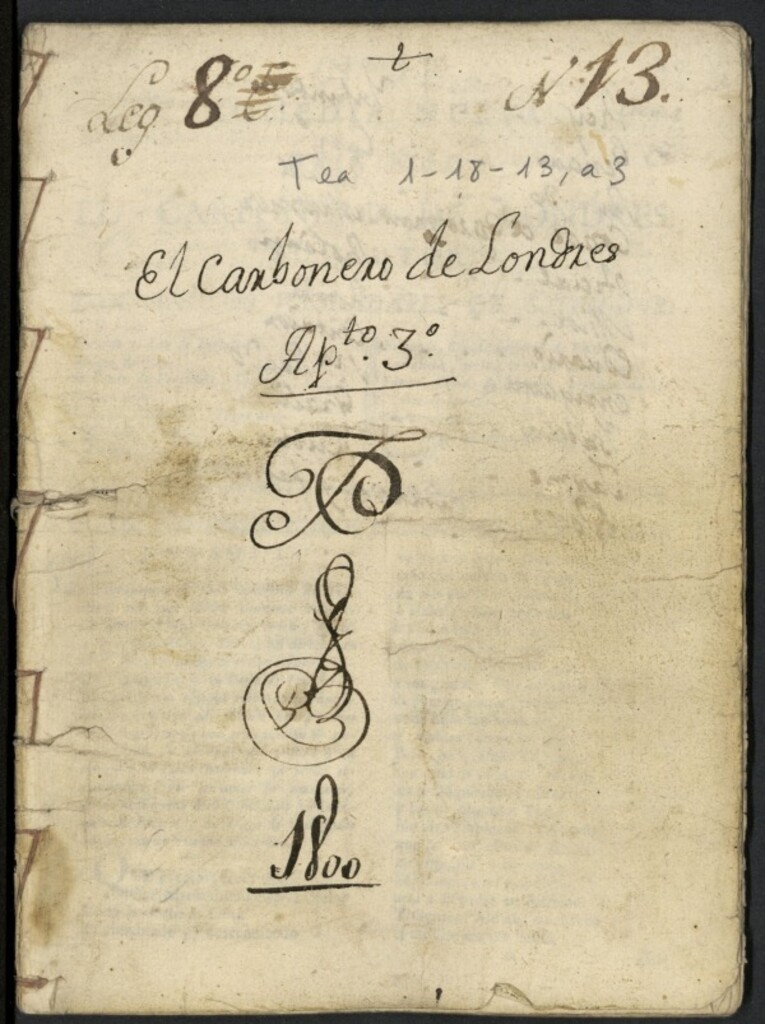 Leg 8º N 13.
Tea 1-18-13, a 3
El Carbonero de Londres
Apto. 3º
1800